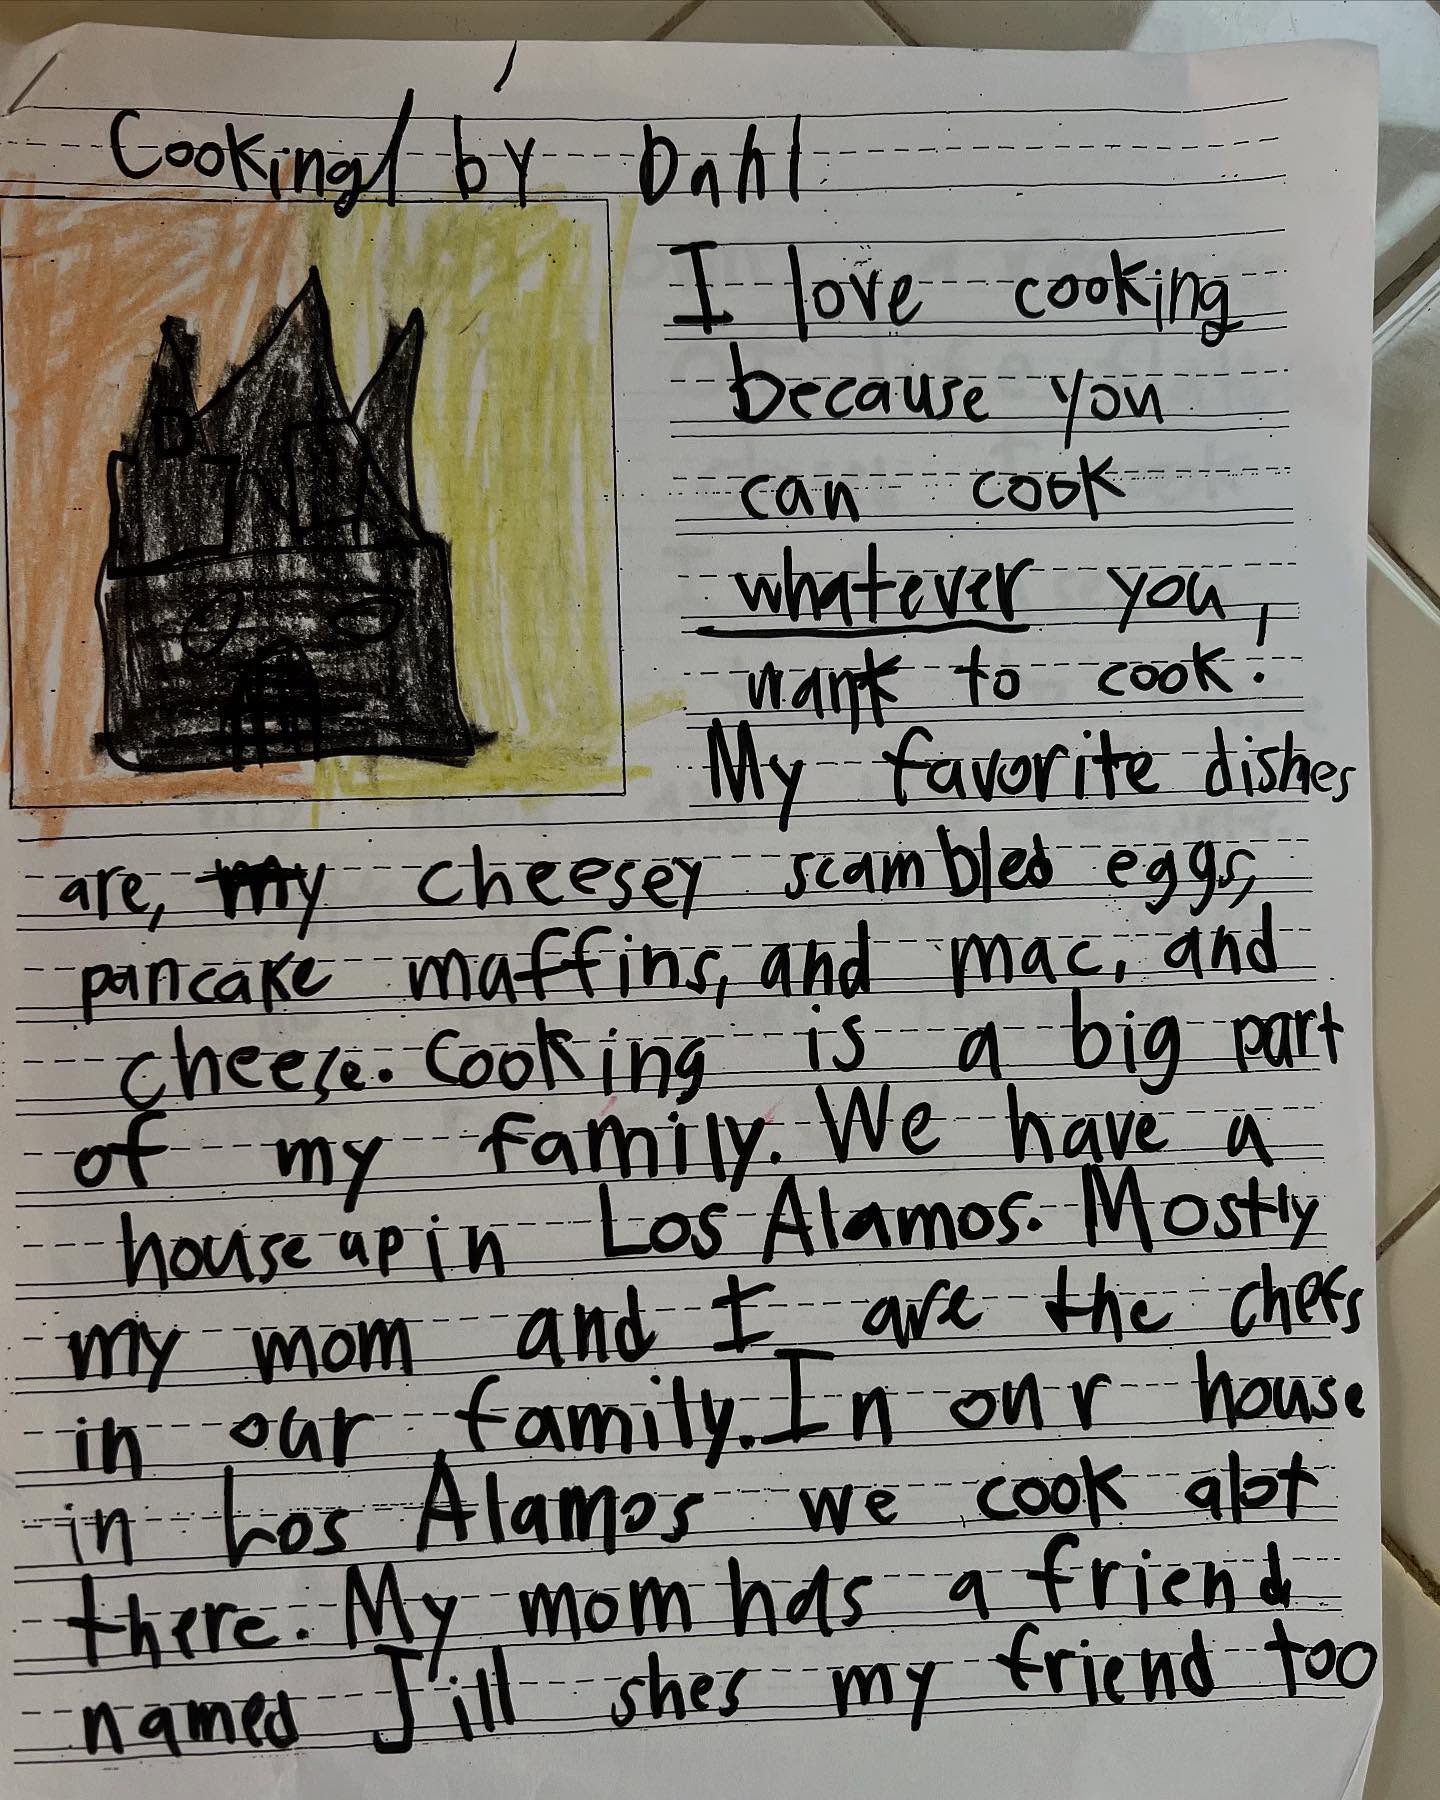 Cooking/ by Dahl
I love cooking
because you
can cook
whatever you
want to cook!
My favorite dishes
are, my cheesey scambled eggs,
pancake maffins, and mac, and
cheese. Cooking is a big part
of my family. We have a
house up in Los Alamos. Mostly
my mom and I are the chefs
in our family. In our house
in Los Alamos we cook alot
there. My mom has a friend
named Jill shes my friend too